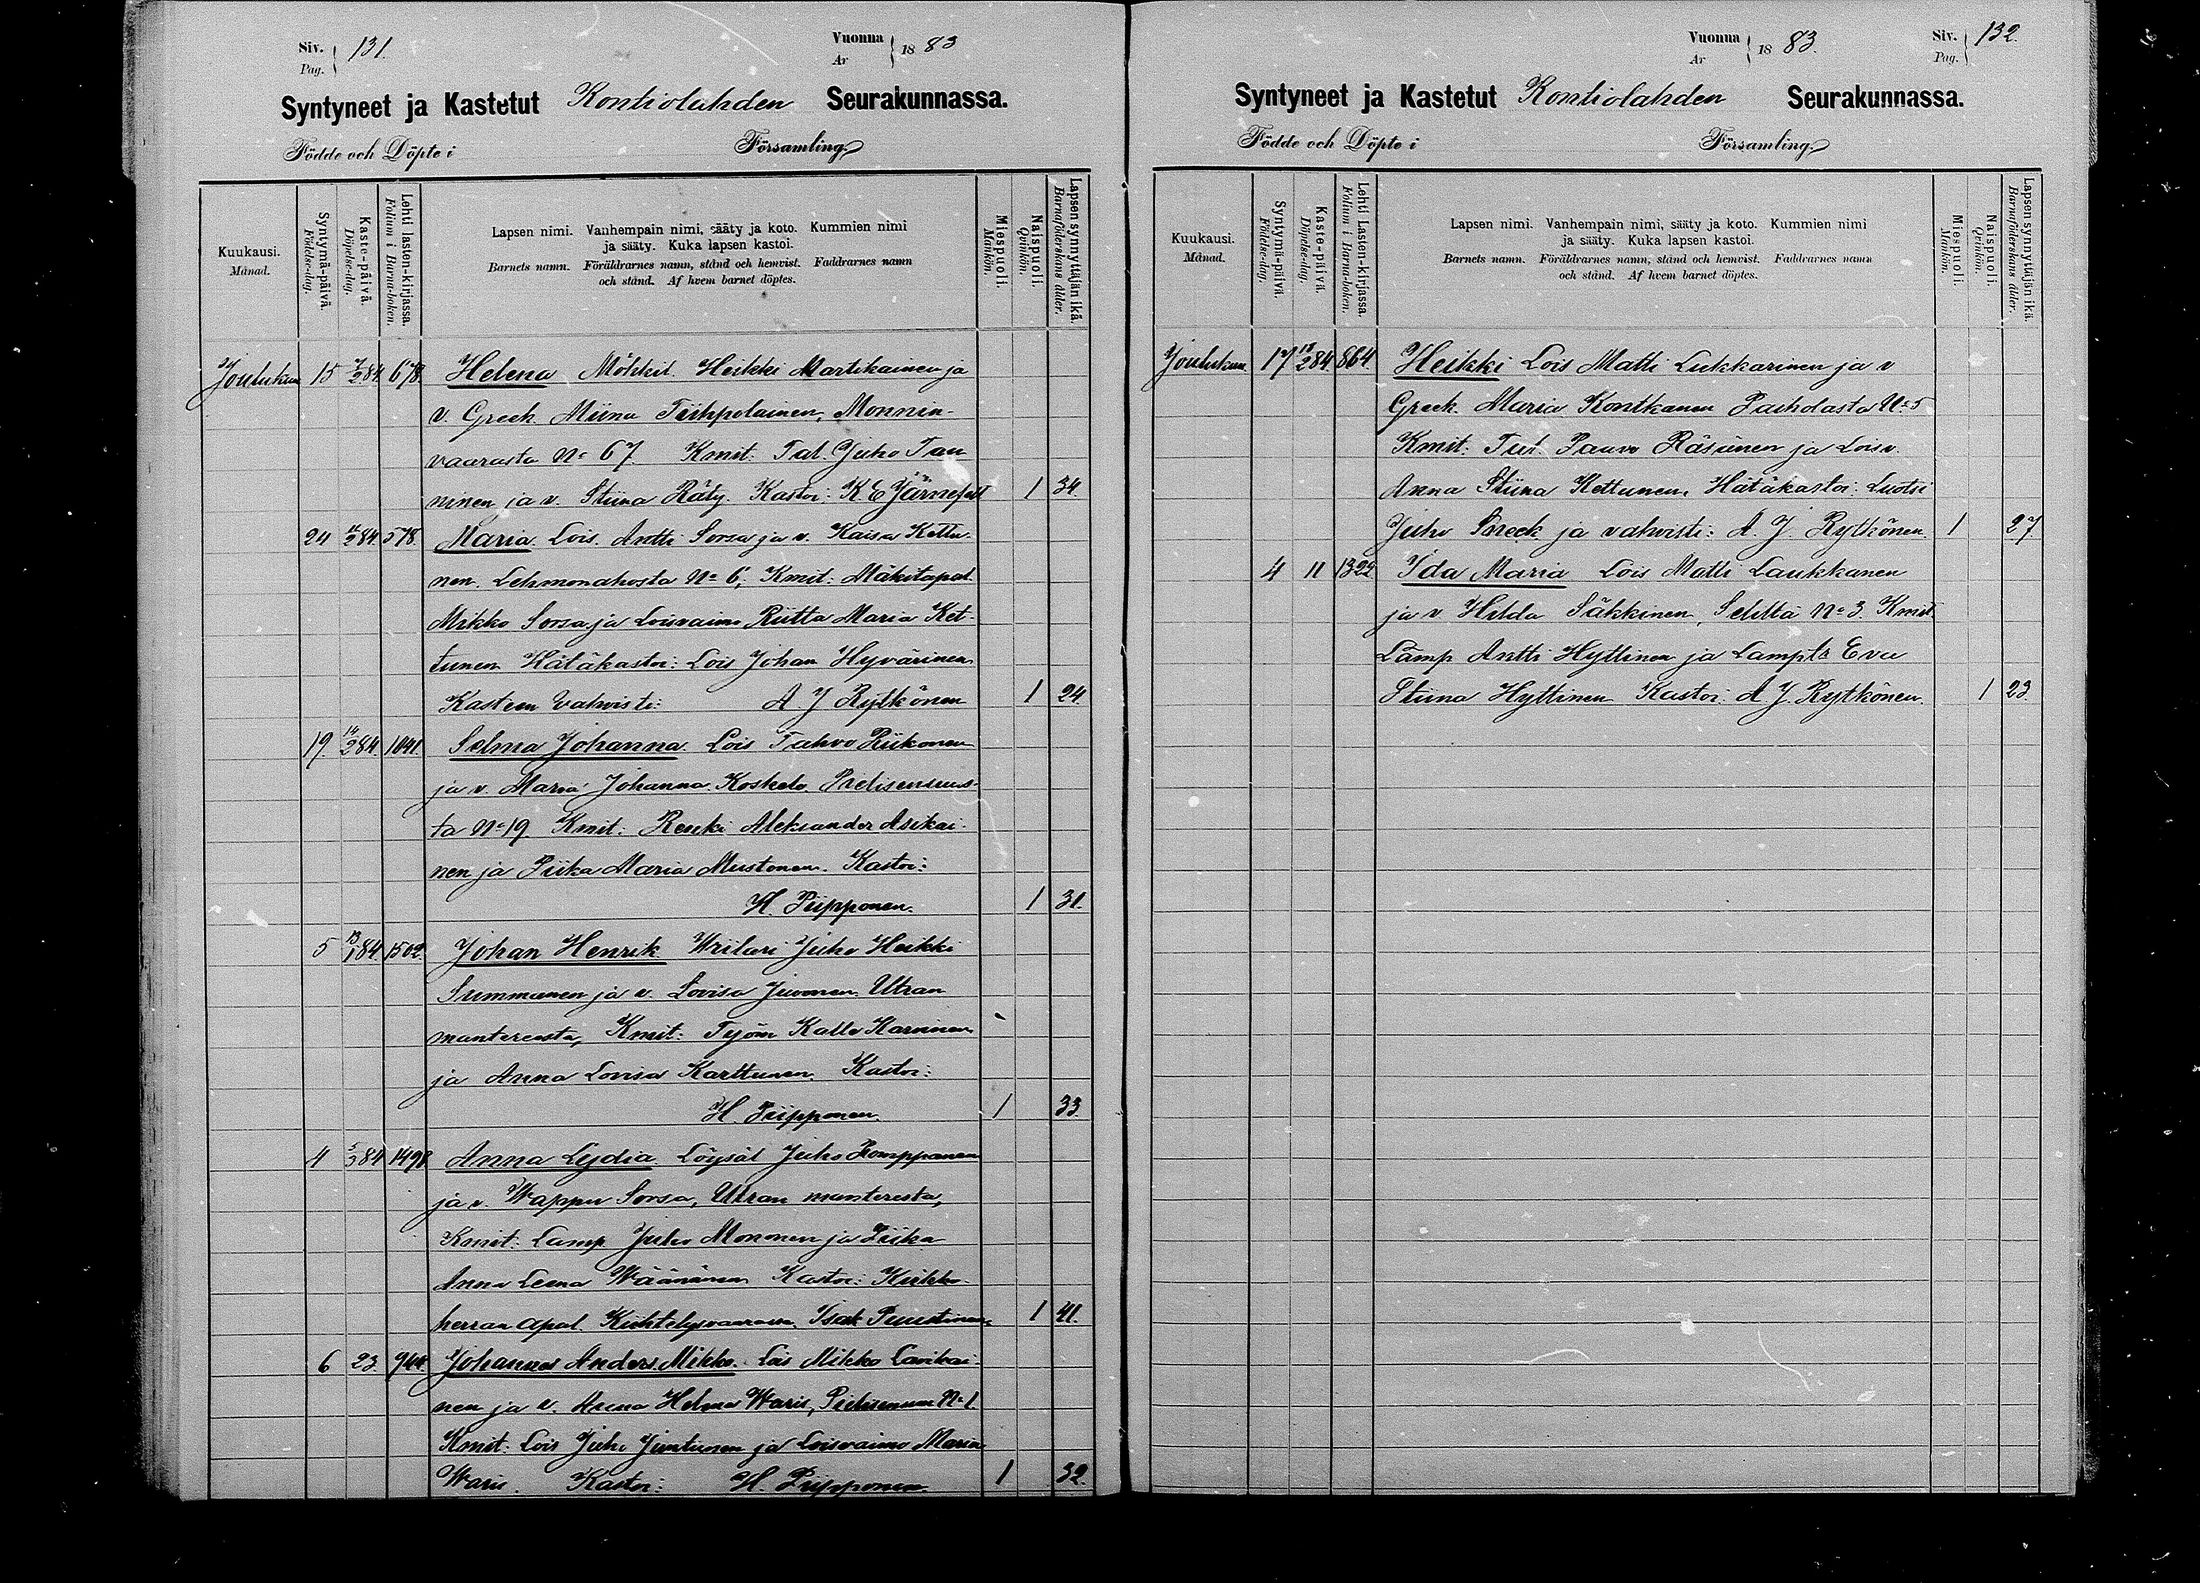 Siv. 131.
Pag.
Vuonna 1883
Ar
Syntyneet ja Kastetut Kontiolahden Seurakunnassa.
Födde och Döpte i Församling.
Kuukausi.
Månad.
Syntymä-päivä.
Födelse-dag.
Kaste-päivä.
Döpelse-dag.
Lehti lasten-kirjassa.
Folium i Barna-boken.
Lapsen nimi. Vanhempain nimi, sääty ja koto. Kummien nimi
ja sääty. Kuka lapsen kastoi.
Barnets namn. Föräldrarnes namn, stånd och hemvist. Faddrarnes namn
och stånd. Af hvem barnet döptes.
Miespuoli.
Mankön.
Naispuoli.
Qvinkön.
Lapsen synnyttäjän ikä.
Barnaföderskans ålder.
Joulukuu 15 7/2 84. 678. Helena Mökkil. Heikki Martikainen ja
v. Greek. Miina Tiihpolainen, Monnin-
vaarasta No 67. Kmit: Tal. Juho Tan
ninen ja v. Stiina Räty. Kastoi: K E Järnefelt 1 34.
24 14/2 84. 578. Maria Lois. Antti Sorsa ja v. Kaisa Kettu-
nen. Lehmonahosta No 6, Kmit: Mäkitapal.
Mikko Sorsa ja Loisvaimo Riitta Maria Ket-
tunen Hätäkastoi: Lois Johan Hyvärinen
Kasteen vahvisti: A J Rytkönen 1 24.
19. 14/2 84. 1041. Selma Johanna. Lois Tahvo Riikonen
ja v. Maria Johanna Koskelo
ta No 19. Kmit: Renki Aleksander Asikai-
nen ja Piika Maria Mustonen. Kastoi:
H. Piipponen. 1 31.
5 13/1 84. 1502. Johan Henrik Juho Heikki
Summanen ja v. Lovisa Juvonen, Utran
mantereesta, Kmit: Työm Kalle Karvinen
ja Anna Lovisa Karttunen. Kastoi:
H. Piipponen. 1 33.
4 5/3 84. 1498. Anna Lydia Löysäl Juho Romppanen
ja v. Wappu Sorsa, Utran manteresta,
Kmit: Lamp Juho Mononen ja Piika
Anna Leena Wäänänen Kastoi: Kirkko-
herran apul. Kiihtelysvaarassa. Isak Puustinen 1 41.
6 23. 944. Johannes Anders Mikko. Lois Mikko Lavikai-
nen ja v. Anna Helena Waris, Pielisensuu No 1.
Kmit: Lois Juho Juntunen ja Loisvaimo Maria
Waris. Kastoi: H. Piipponen 1 32.
Vuonna 1883.
Ar
Siv. 132.
Pag.
Syntyneet ja Kastetut Kontiolahden Seurakunnassa.
Födde och Döpte i Församling.
Kuukausi.
Månad.
Syntymä-päivä.
Födelse-dag.
Kaste-päivä.
Döpelse-dag.
Lehti Lasten-kirjassa.
Folium i Barna-boken.
Lapsen nimi. Vanhempain nimi, sääty ja koto. Kummien nimi
ja sääty. Kuka lapsen kastoi.
Barnets namn. Föräldrarnes namn, stånd och hemvist. Faddrarnes namn
och stånd. Af hvem barnet döptes.
Miespuoli.
Mankön.
Naispuoli.
Qvinkön.
Lapsen synnyttäjän ikä.
Barnaföderskans ålder.
Joulukuu. 17 18/2 84. 864. Heikki Lois Matti Lukkarinen ja v
Greek. Maria Kontkanen Paiholasta No 5
Kmit: Tal. Paavo Räsänen ja Lois v.
Anna Stiina Kettunen. Hätäkastoi: Luotsi
Juho Sneck ja vahvisti: A. J. Rytkönen. 1 27
4 11 1322. Ida Maria Lois Matti Laukkanen
ja v Hilda Säkkinen, Seliltä No 3. Kmit.
Lamp Antti Hyttinen ja Lamptr Eva
Stiina Hyttinen Kastoi: A. J. Rytkönen. 1 23